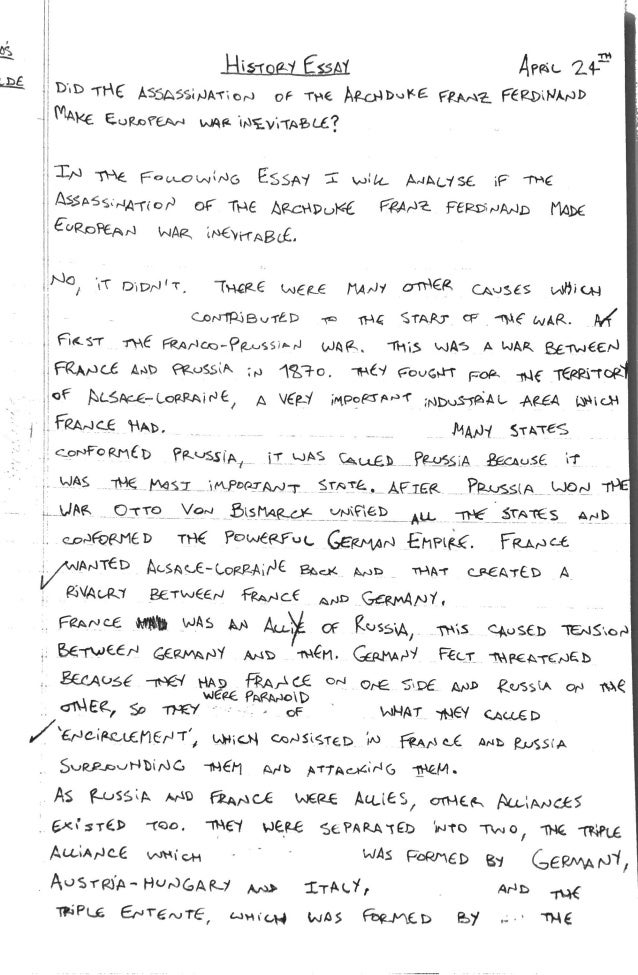 O'S
LDE
HISTORY ESSAY APRIL 24TH
DID THE ASSASSINATION OF THE ARCHDUKE FRANZ FERDINAND
MAKE EUROPEAN WAR INEVITABLE?
IN THE FOLLOWING ESSAY I WILL ANALYSE IF THE
ASSASSINATION OF THE ARCHDUKE FRANZ FERDINAND MADE
EUROPEAN WAR INEVITABLE.
NO, IT DIDN'T. THERE WERE MANY OTHER CAUSES WHICH
CONTRIBUTED TO THE START OF THE WAR. AT
FIRST THE FRANCO-PRUSSIAN WAR. THIS WAS A WAR BETWEEN
FRANCE AND PRUSSIA IN 1870. THEY FOUGHT FOR THE TERRITORY
OF ALSACE-LORRAINE, A VERY IMPORTANT INDUSTRIAL AREA WHICH
FRANCE HAD. MANY STATES
CONFORMED PRUSSIA, IT WAS CALLED PRUSSIA BECAUSE IT
WAS THE MOST IMPORTANT STATE. AFTER PRUSSIA WON THE
WAR OTTO VON BISMARCK UNIFIED ALL THE STATES AND
CONFORMED THE POWERFUL GERMAN EMPIRE. FRANCE
WANTED ALSACE-LORRAINE BACK AND THAT CREATED A
RIVALRY BETWEEN FRANCE AND GERMANY.
FRANCE WAS AN ALLY OF RUSSIA, THIS CAUSED TENSION
BETWEEN GERMANY AND THEM. GERMANY FELT THREATENED
BECAUSE THEY HAD FRANCE ON ONE SIDE AND RUSSIA ON THE
OTHER, SO THEY WERE PARANOID OF WHAT THEY CALLED
'ENCIRCLEMENT', WHICH CONSISTED IN FRANCE AND RUSSIA
SURROUNDING THEM AND ATTACKING THEM.
AS RUSSIA AND FRANCE WERE ALLIES, OTHER ALLIANCES
EXISTED TOO. THEY WERE SEPARATED INTO TWO, THE TRIPLE
ALLIANCE WHICH WAS FORMED BY GERMANY,
AUSTRIA-HUNGARY AND ITALY, AND THE
TRIPLE ENTENTE, WHICH WAS FORMED BY THE